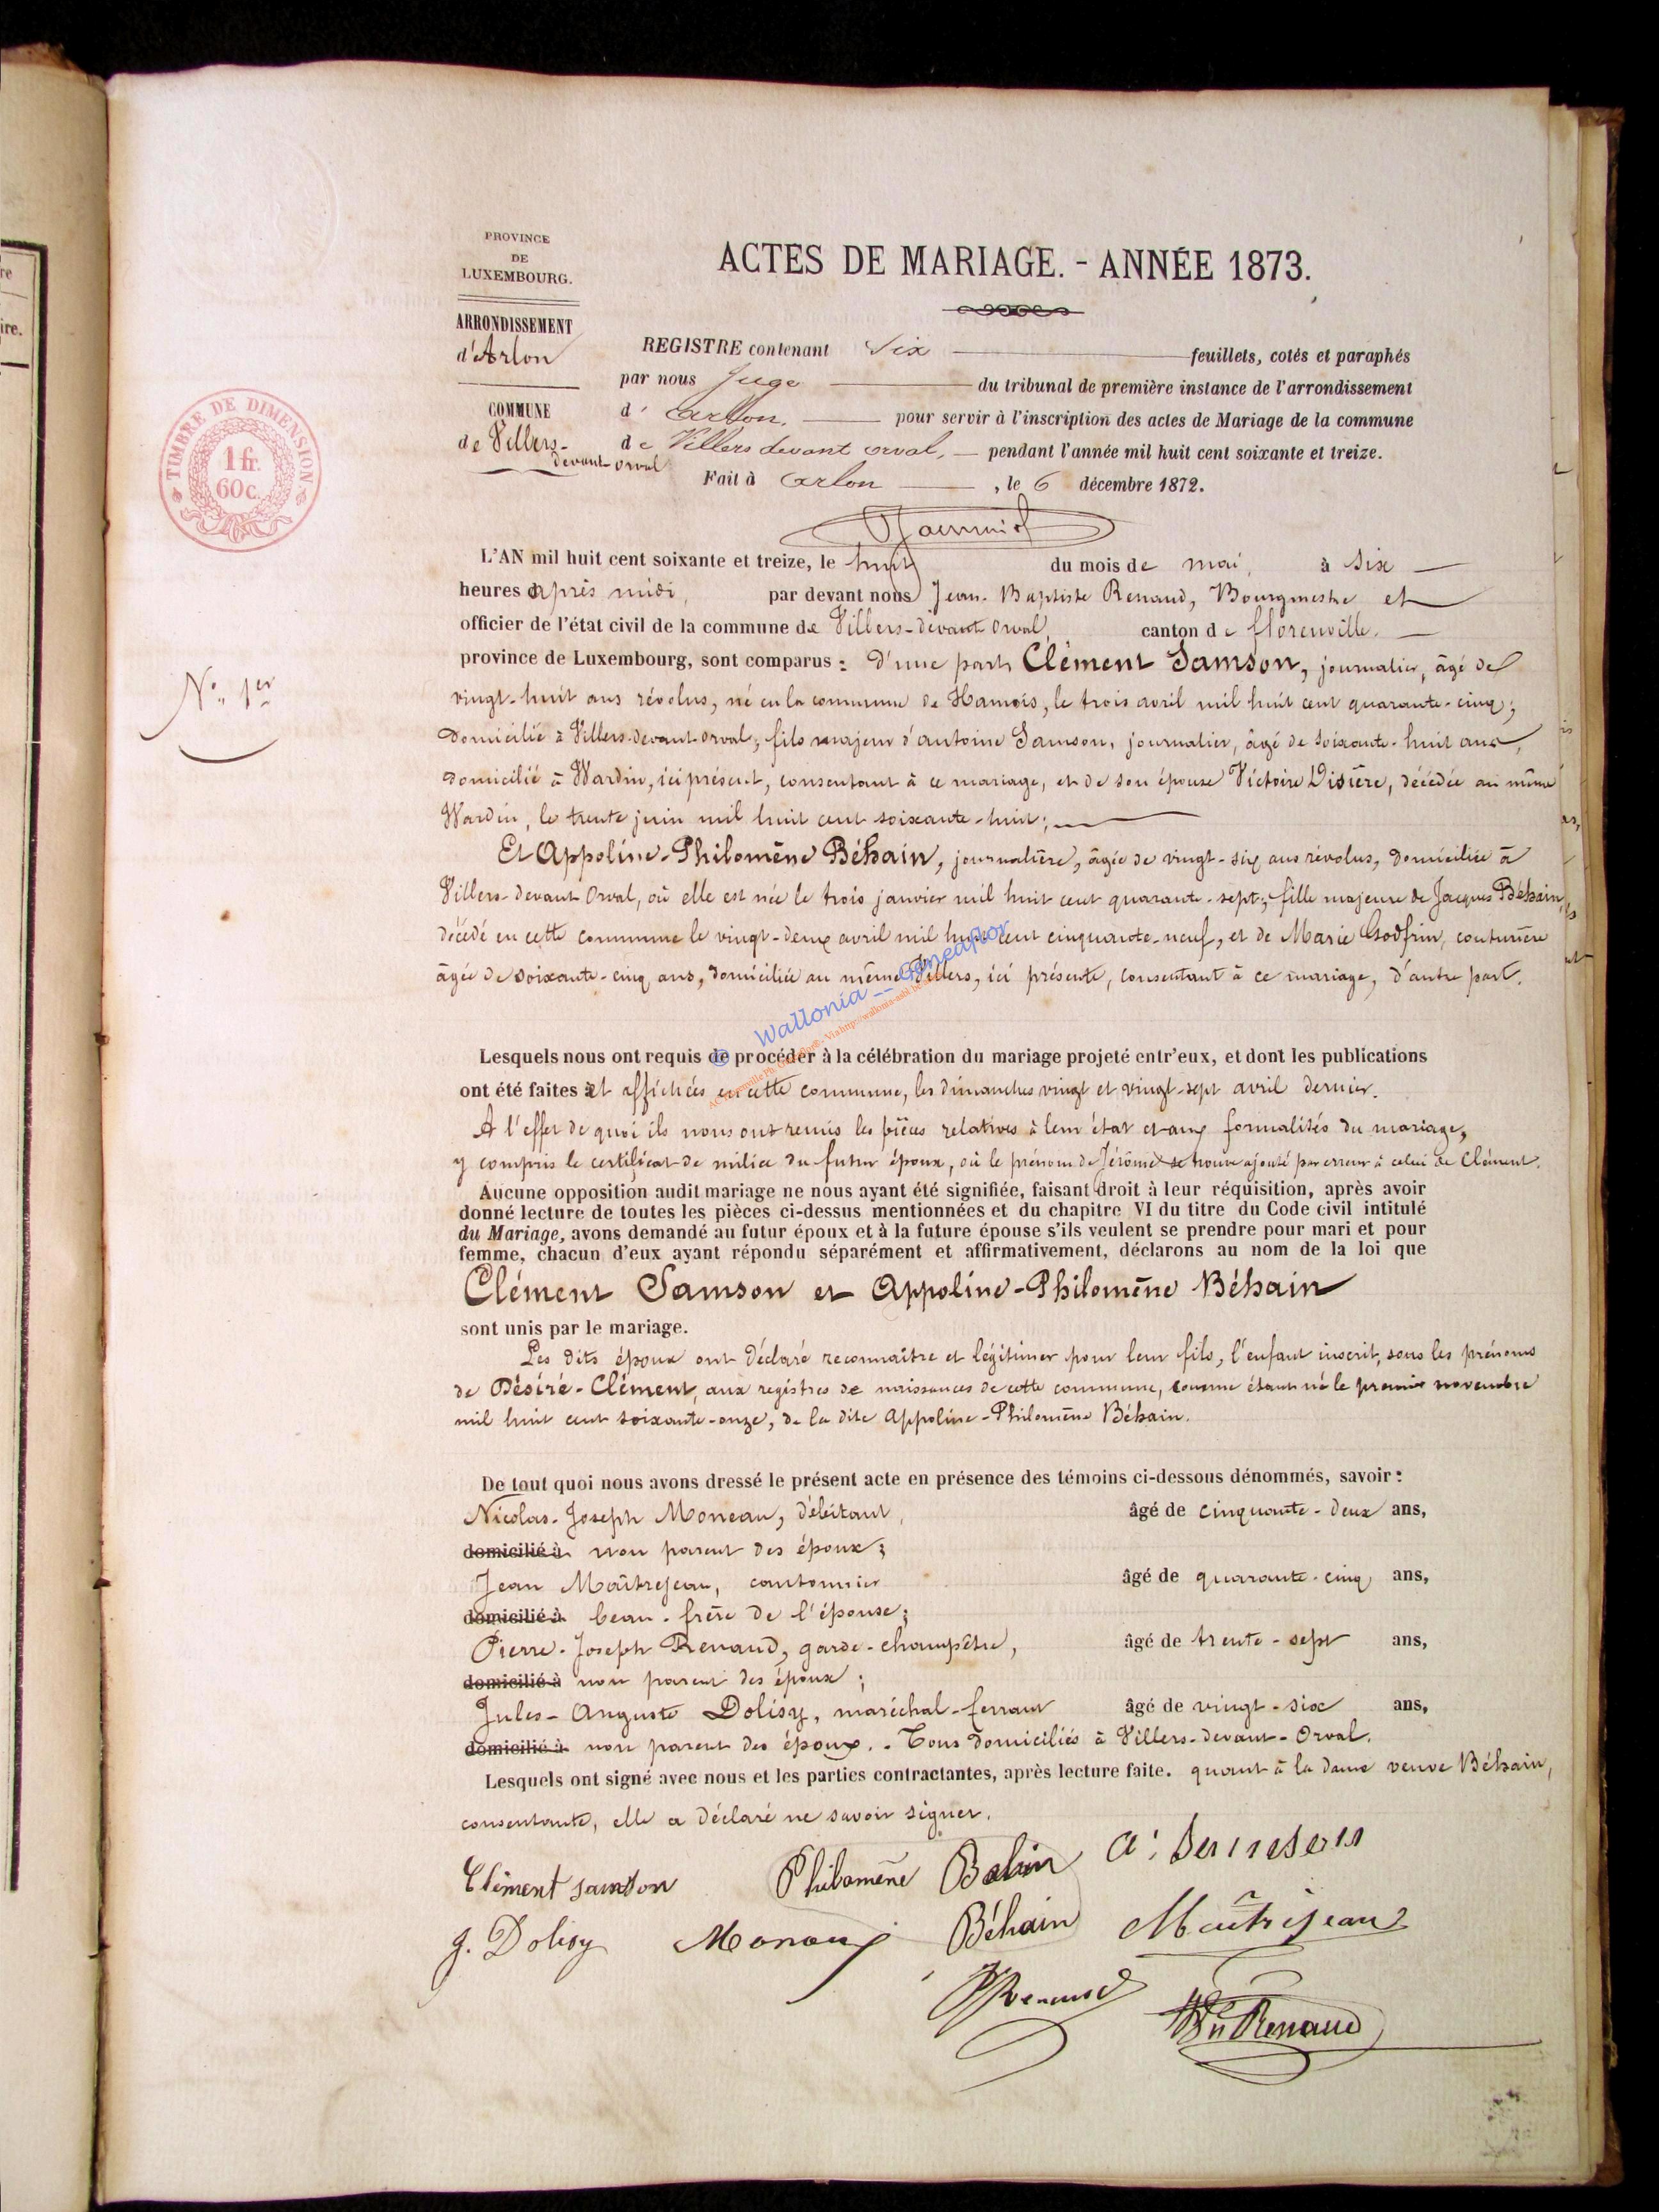 PROVINCE
DE
LUXEMBOURG.
ARRONDISSEMENT
d'Arlon
COMMUNE
de Villers-
devant-orval
TIMBRE DE DIMENSION
1 fr.
60 c.
N° 1er
ACTES DE MARIAGE. - ANNÉE 1873.
REGISTRE contenant Six feuillets, cotés et paraphés
par nous Juge du tribunal de première instance de l'arrondissement
d' Arlon. pour servir à l'inscription des actes de Mariage de la commune
de Villers devant orval, pendant l'année mil huit cent soixante et treize.
Fait à Arlon, le 6 décembre 1872.
L'AN mil huit cent soixante et treize, le huit du mois de mai, à six
heures après midi, par devant nous Jean-Baptiste Renaud, Bourgmestre et
officier de l'état civil de la commune de Villers-devant Orval, canton de florenville.
province de Luxembourg, sont comparus : D'une part Clément Samson, journalier, âgé de
vingt-huit ans révolus, né en la commune de Hamois, le trois avril mil huit cent quarante-cinq;
domicilié à Villers-devant-orval; fils majeur d'antoine Samson, journalier, âgé de soixante-huit ans,
domicilié à Wardin, ici présent, consentant à ce mariage, et de son épouse Victoire Disière, décédée au même
Wardin, le trente juin mil huit cent soixante-huit;
Et Appoline-Philomène Béhain, journalière, âgée de vingt-six ans révolus, domiciliée à
Villers-devant Orval, où elle est née le trois janvier mil huit cent quarante-sept; fille majeure de Jacques Béhain,
décédé en cette commune le vingt-deux avril mil huit cent cinquante-neuf, et de Marie Godfrin, couturière
âgée de soixante-cinq ans, domiciliée au même Villers, ici présente, consentant à ce mariage, d'autre part.
© Wallonia -- Geneaflor
Lesquels nous ont requis de procéder à la célébration du mariage projeté entr'eux, et dont les publications
ont été faites et affichées en cette commune, les dimanches vingt et vingt-sept avril dernier.
A l'effet de quoi ils nous ont remis les pièces relatives à leur état et aux formalités du mariage,
y compris le certificat de milice du futur époux, où le prénom de Jérôme se trouve ajouté par erreur à celui de Clément.
Aucune opposition audit mariage ne nous ayant été signifiée, faisant droit à leur réquisition, après avoir
donné lecture de toutes les pièces ci-dessus mentionnées et du chapitre VI du titre du Code civil intitulé
du Mariage, avons demandé au futur époux et à la future épouse s'ils veulent se prendre pour mari et pour
femme, chacun d'eux ayant répondu séparément et affirmativement, déclarons au nom de la loi que
Clément Samson et Appoline-Philomène Béhain
sont unis par le mariage.
Les dits époux ont déclaré reconnaître et légitimer pour leur fils, l'enfant inscrit, sous les prénoms
de Désiré-Clément, aux registres de naissances de cette commune, comme étant né le premier novembre
mil huit cent soixante-onze, de la dite Appoline-Philomène Béhain.
De tout quoi nous avons dressé le présent acte en présence des témoins ci-dessous dénommés, savoir :
Nicolas-Joseph Moneau, débitant, âgé de cinquante-deux ans,
domicilié à non parent des époux;
Jean Maîtrejean, cantonnier âgé de quarante-cinq ans,
domicilié à beau-frère de l'épouse;
Pierre-Joseph Renaud, garde-champêtre, âgé de trente-sept ans,
domicilié à non parent des époux;
Jules-Auguste Dolisy, maréchal-ferrant âgé de vingt-six ans,
domicilié à non parent des époux. - Tous domiciliés à Villers-devant-Orval.
Lesquels ont signé avec nous et les parties contractantes, après lecture faite. quant à la dame veuve Béhain,
consentante, elle a déclaré ne savoir signer.
Clément samson Philomène Behin
J. Dolisy Béhain Maîtrejean
PRenaud
Renaud